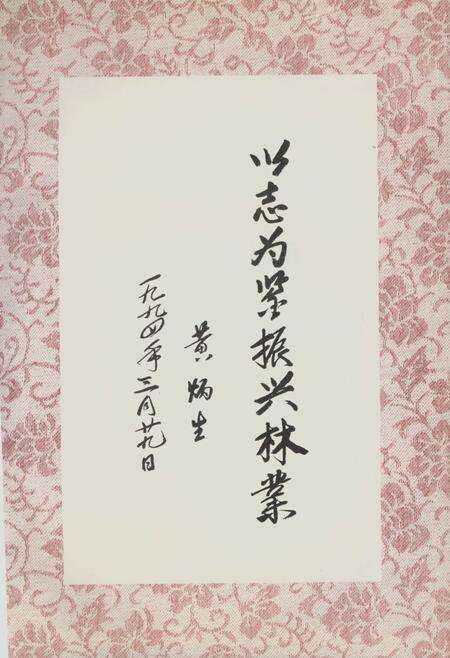 以志为鉴振兴林業
黄炳生
一九九四年三月廿九日